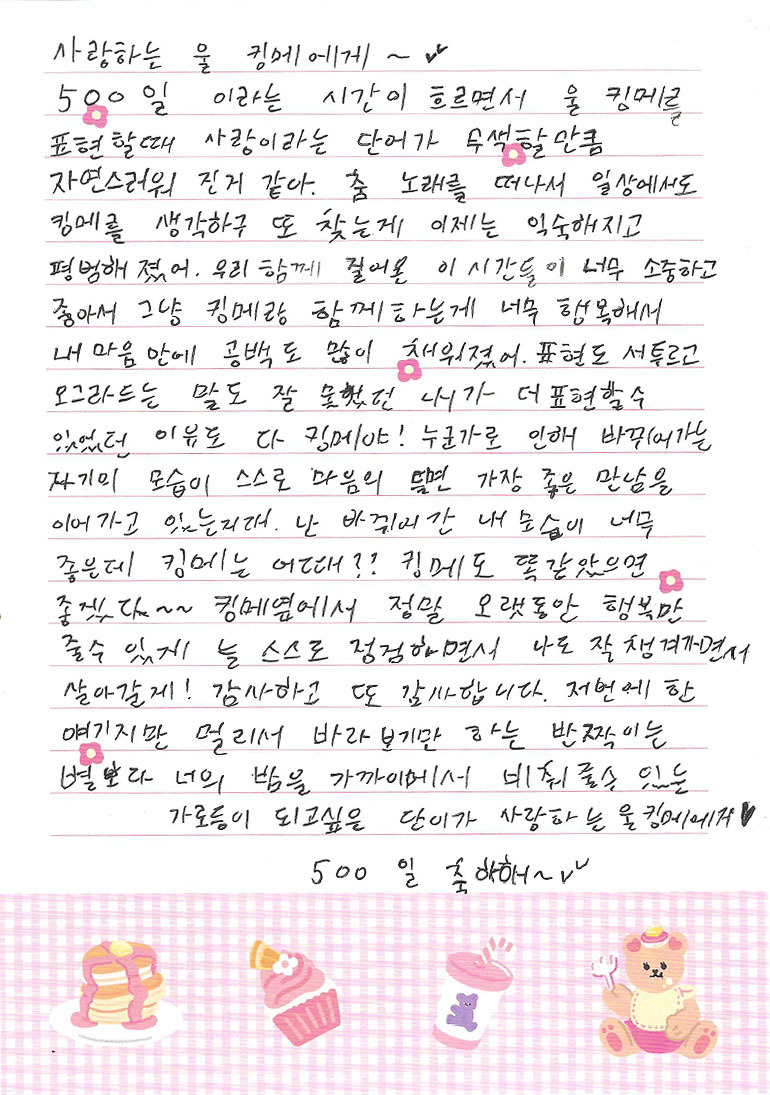 사랑하는 울 킹메에게 ~ ✓✓
500일 이라는 시간이 흐르면서 울 킹메를
표현할때 사랑이라는 단어가 무색할만큼
자연스러워 진거 같아. 춤 노래를 떠나서 일상에서도
킹메를 생각하구 또 찾는게 이제는 익숙해지고
평범해 졌어. 우리 함께 걸어온 이 시간들이 너무 소중하고
좋아서 그냥 킹메랑 함께하는게 너무 행복해서
내 마음안에 공백도 많이 채워졌어. 표현도 서투르고
오그라드는 말도 잘 못했던 내가 더 표현할수
있었던 이유도 다 킹메야! 누군가로 인해 바뀌어가는
자기의 모습이 스스로 마음의 들면 가장 좋은 만남을
이어가고 있는거래. 난 바뀌어간 내 모습이 너무
좋은데 킹메는 어때?? 킹메도 똑같았으면
좋겠다~~ 킹메옆에서 정말 오랫동안 행복만
줄수 있게 늘 스스로 점검하면서 나도 잘 챙겨가면서
살아갈게! 감사하고 또 감사합니다. 저번에 한
얘기지만 멀리서 바라보기만 하는 반짝이는
별보다 너의 밤을 가까이에서 비춰줄수 있는
가로등이 되고싶은 단이가 사랑하는 울킹메에게♥
500 일 축하해~✓✓